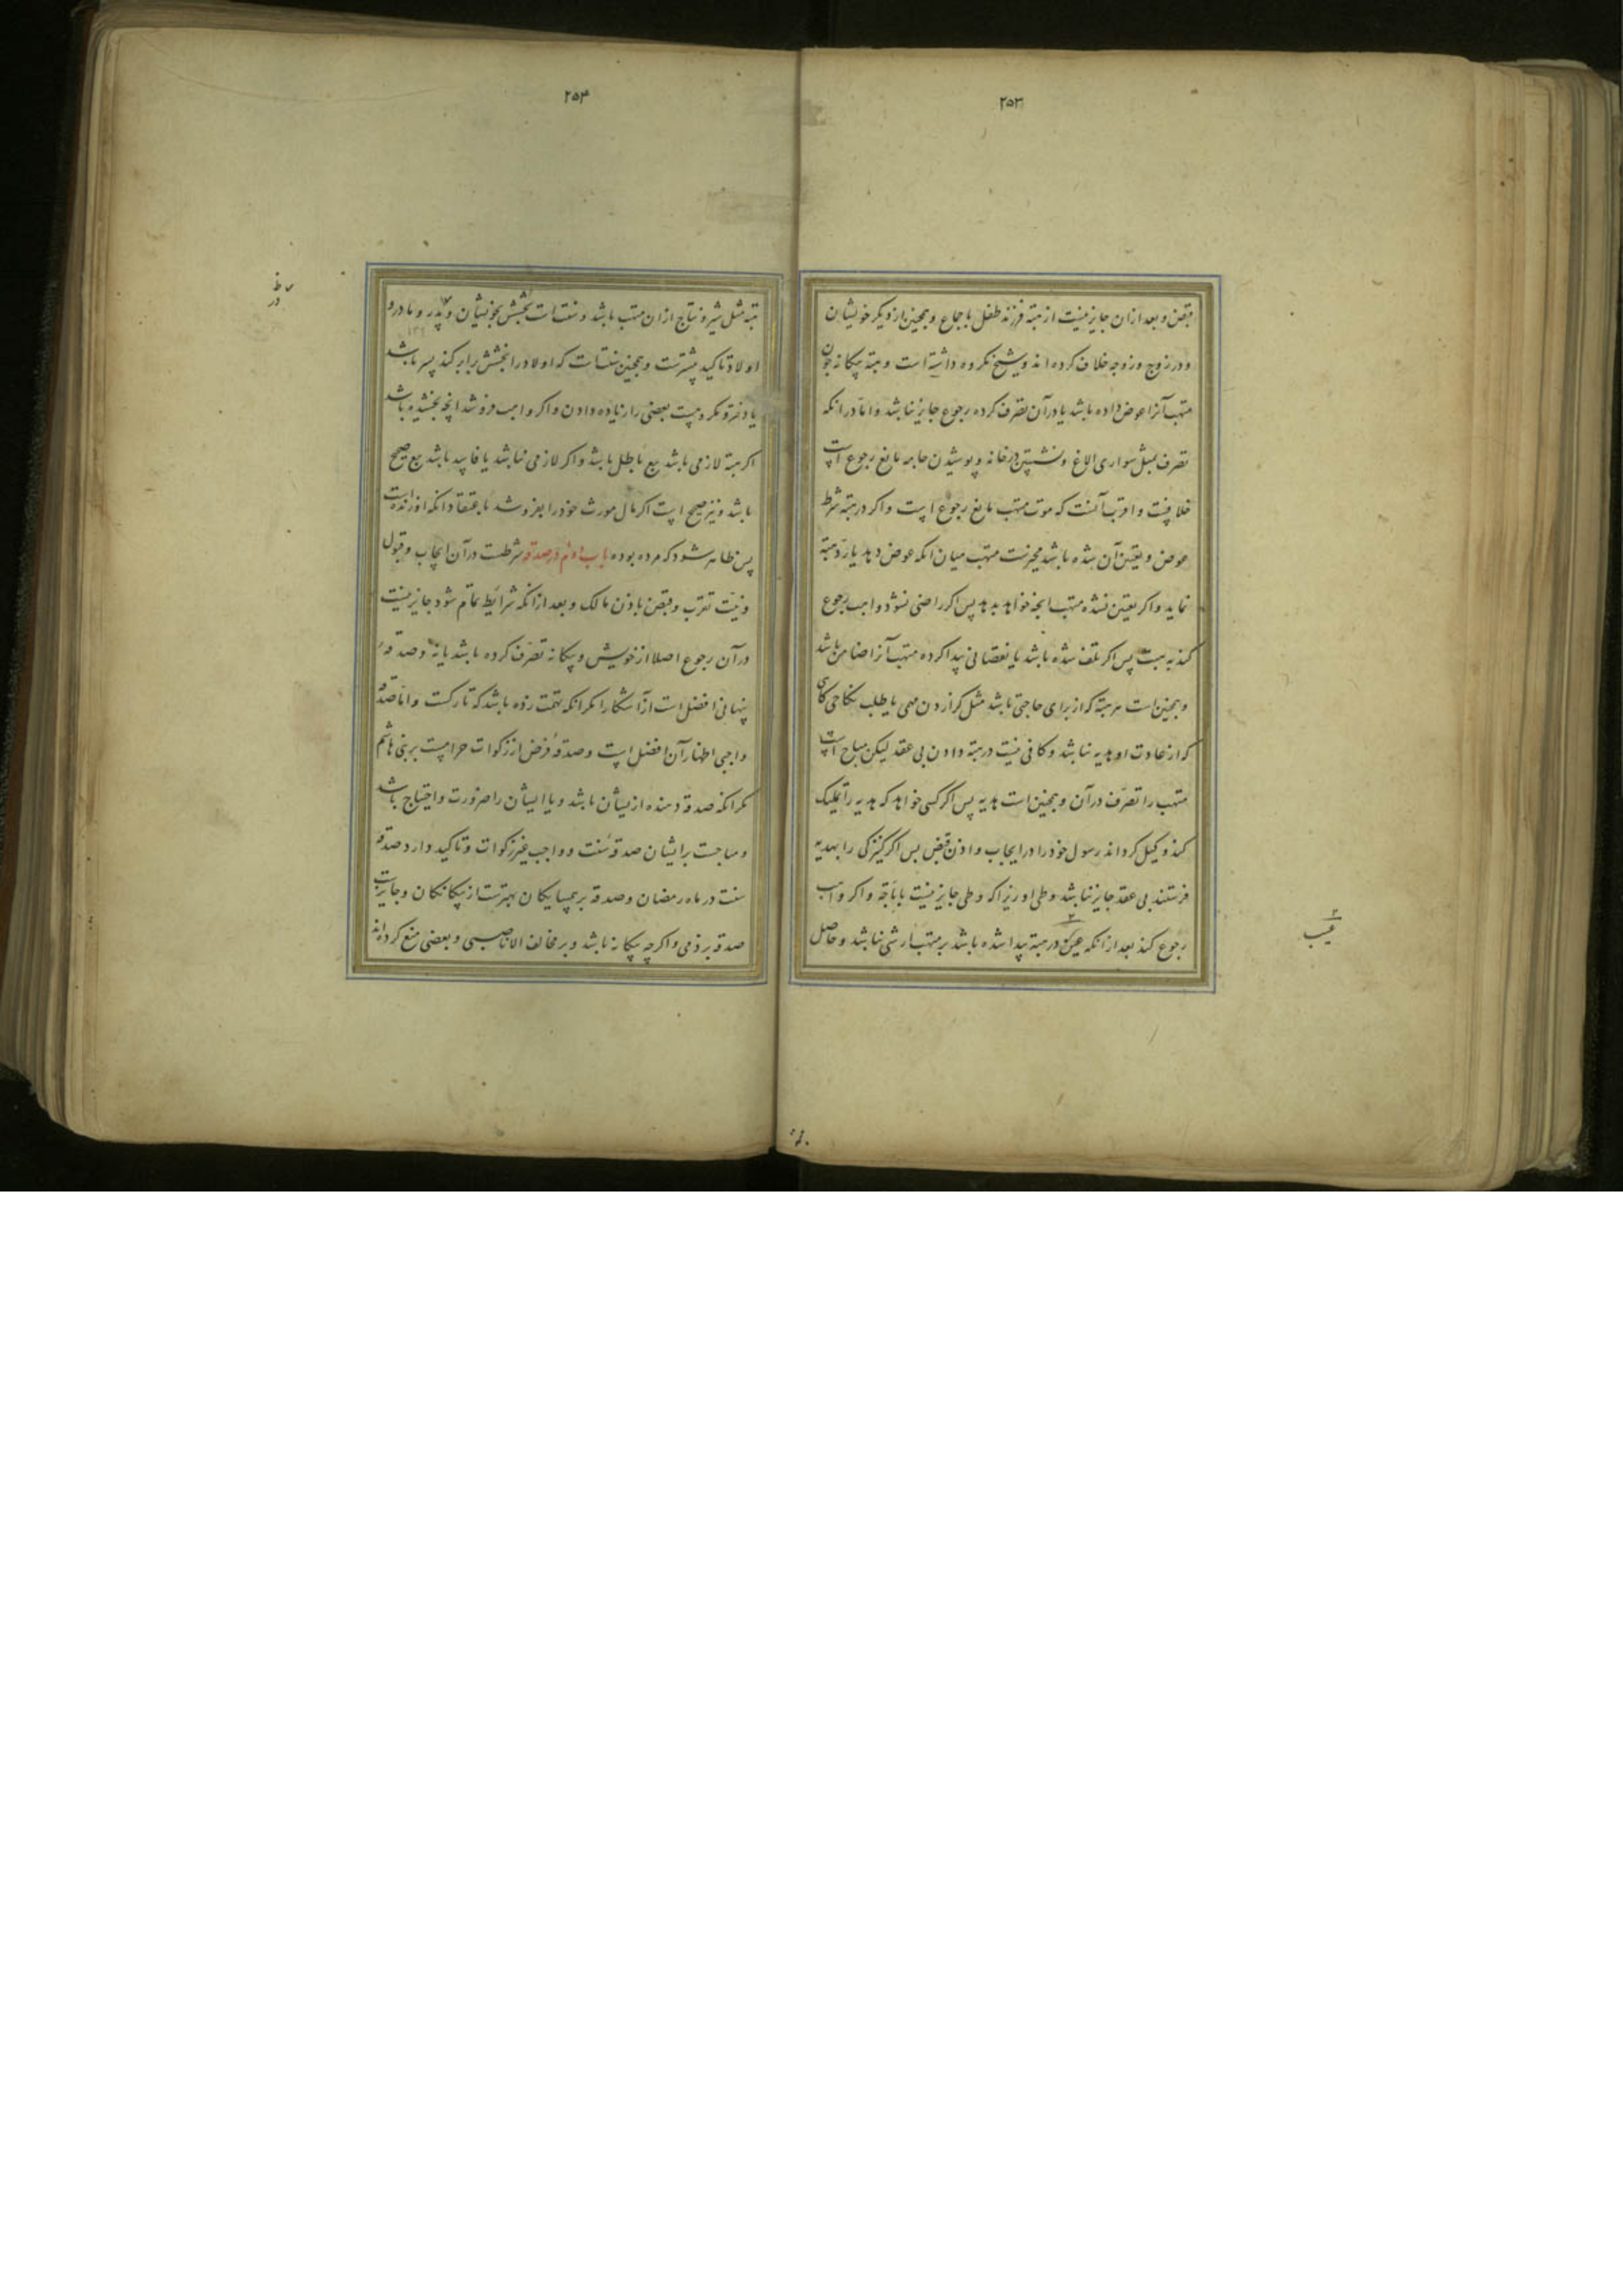 ۲۵۳
قبض و بعد از ان جایز نیست از هبته فرزند طفل باجماع و همچنین از دیکر خویشان
و در زوج و زوجه خلاف کرده اند و شیخ مکروه داشته است و هبته بیکانه چون
متهب آنرا عوض داده باشد یا در آن تصرف کرده رجوع جایز نباشد و اما در انکه
تصرف بمثل سواری الاغ و نشستن در خانه و پوشیدن جامه مانع رجوع است
خلافست و اقرب آنست که موت متهب مانع رجوع است و اکر در هبته شرط
عوض و تعیین آن شده باشد مخیرست متهب میان انکه عوض دهد یا رد هبته
نماید و اکر تعیین نشده متهب انچه خواهد بدهد پس اکر راضی نشود واهب رجوع
کند به هبت پس اکر تلف شده باشد یا نقصانی پیدا کرده متهب آنرا ضامن باشد
و همچنین است هر هبته که از برای حاجتی باشد مثل کزاردن مهمی یا طلب نکاحی کاهی
که از عادت او هدیه نباشد و کافی نیست در هبته دادن بی عقد لیکن مباح است
متهب را تصرف در آن و همچنین است هدیه پس اکر کسی خواهد که هدیه را تملیک
کند وکیل کرداند رسول خود را در ایجاب و اذن قبض پس اکر کنیزکی را بهدیه
فرستند بی عقد جایز نباشد وطی او زیرا که وطی جایز نیست باباحه و اکر واهب
رجوع کند بعد از انکه عیبی در هبته پیدا شده باشد بر متهب ارشی نباشد و حاصل
عیب
۲۵۴
هبته مثل شیر و نتاج از ان متهب باشد و سنت است بخشش بخویشان و پدر و مادر و
اولاد تاکید بیشترست و همچنین سنت است که اولاد را بخشش برابر کند پسر باشد
یا دختر و مکروهست بعضی را زیاده دادن و اکر واهب فروشد انچه بخشیده باشد
اکر هبته لازمی باشد بیع باطل باشد و اکر لازمی نباشد یا فاسد باشد بیع صحیح
باشد و نیز صحیح است اکر مال مورث خود را بفروشد باعتقاد انکه او زنده است
پس ظاهر شود که مرده بوده باب دوم در صدقه شرطست در آن ایجاب و قبول
و نیت تقرب و قبض باذن مالک و بعد از انکه شرایط تمام شود جایز نیست
در آن رجوع اصلا از خویش و بیکانه تصرف کرده باشد یا نه و صدقه
پنهانی افضل است از آشکارا مکر انکه تهمت زده باشد که تارکست و اما صدقه
واجبی اظهار آن افضل است و صدقه فرض از زکوات حرامست بر بنی هاشم
مکر انکه صدقه دهنده ازیشان باشد و یا ایشان را ضرورت و احتیاج باشد
و مباحست بر ایشان صدقه سنت و واجب غیر زکوات و تاکید دارد صدقه
سنت در ماه رمضان و صدقه بر همسایکان بهترست از بیکانکان و جایزست
صدقه بر ذمی و اکرچه بیکانه باشد و بر مخالف الا ناصبی و بعضی منع کرده اند